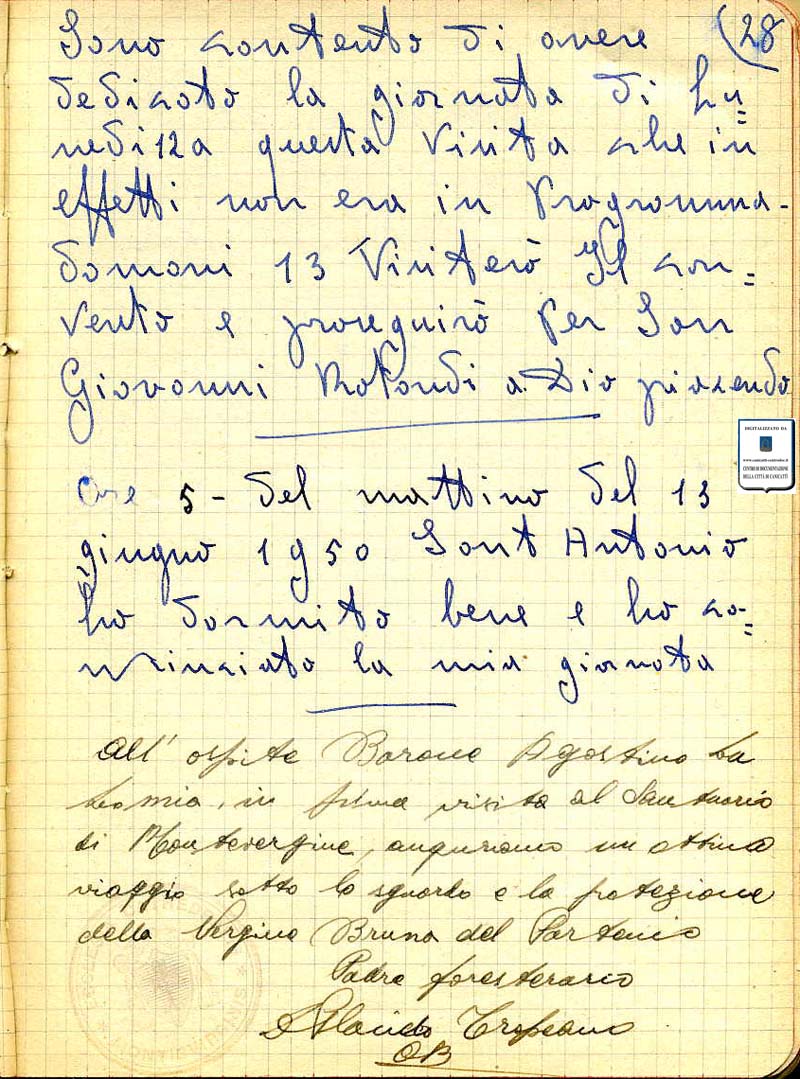 (28
Sono contento di avere
dedicato la giornata di Lu=
nedi 12 a questa Visita che in
effetti non era in Programma-
domani 13 Visiterò Il con=
vento e proseguirò per San
Giovanni Rotondi a Dio piacendo
DIGITALIZZATO DA
CENTRO DI DOCUMENTAZIONE
DELLA CITTÀ DI CANICATTÌ
Ore 5 - del mattino del 13
giugno 1950 Sant Antonio
ho dormito bene e ho co=
minciato la mia giornata
All' ospite Barone Agostino La
Lomia, in prima visita al Santuario
di Montevergine, auguriamo un ottimo
viaggio sotto lo sguardo e la protezione
della Vergine Bruna del Partenio
Padre foresterario
D. Placido Tropeano
OB